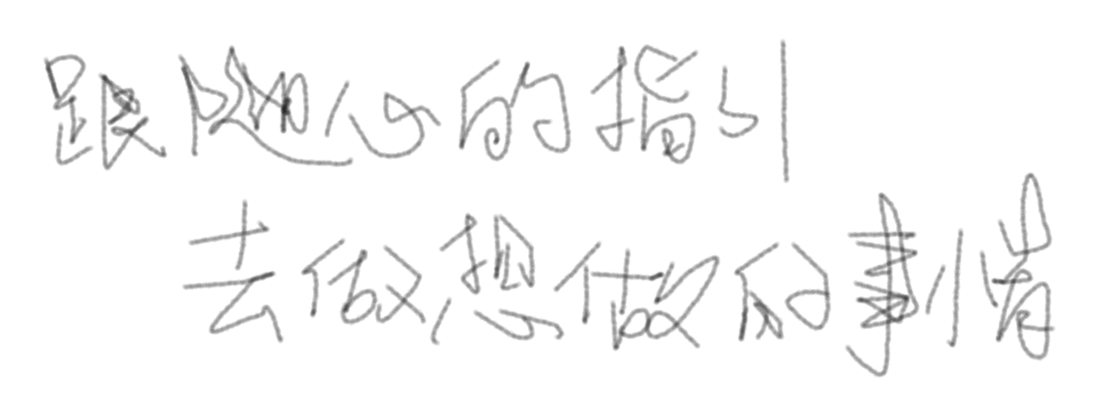 跟随心的指引
去做想做的事情